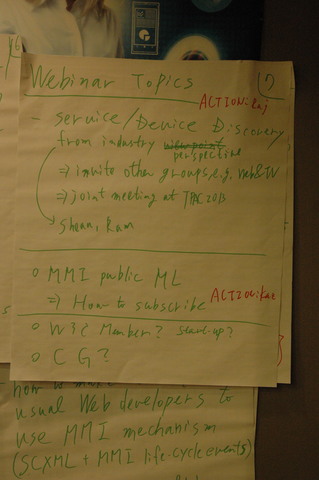 7
Webinar Topics
ACTION: kaj
- Service/Device Discovery
from industry view point
perspective
⇒ invite other groups, e.g. Web&TV
⇒ joint meeting at TPAC2013
Shean, Ram
o MMI public ML
⇒ How to subscribe
ACTION: kaz
o W3C Member? start-up?
o CG?
how to make
usual Web developers to
use MMI mechanism
(SCXML + MMI life-cycle events)